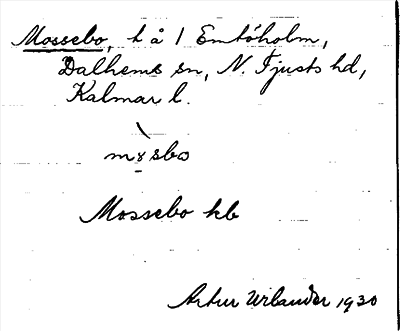 Mossebo, t å 1 Emtöholm,
Dalhems sn, N. Tjusts hd,
Kalmar l.
Mossebo kb
Artur Urlander 1930